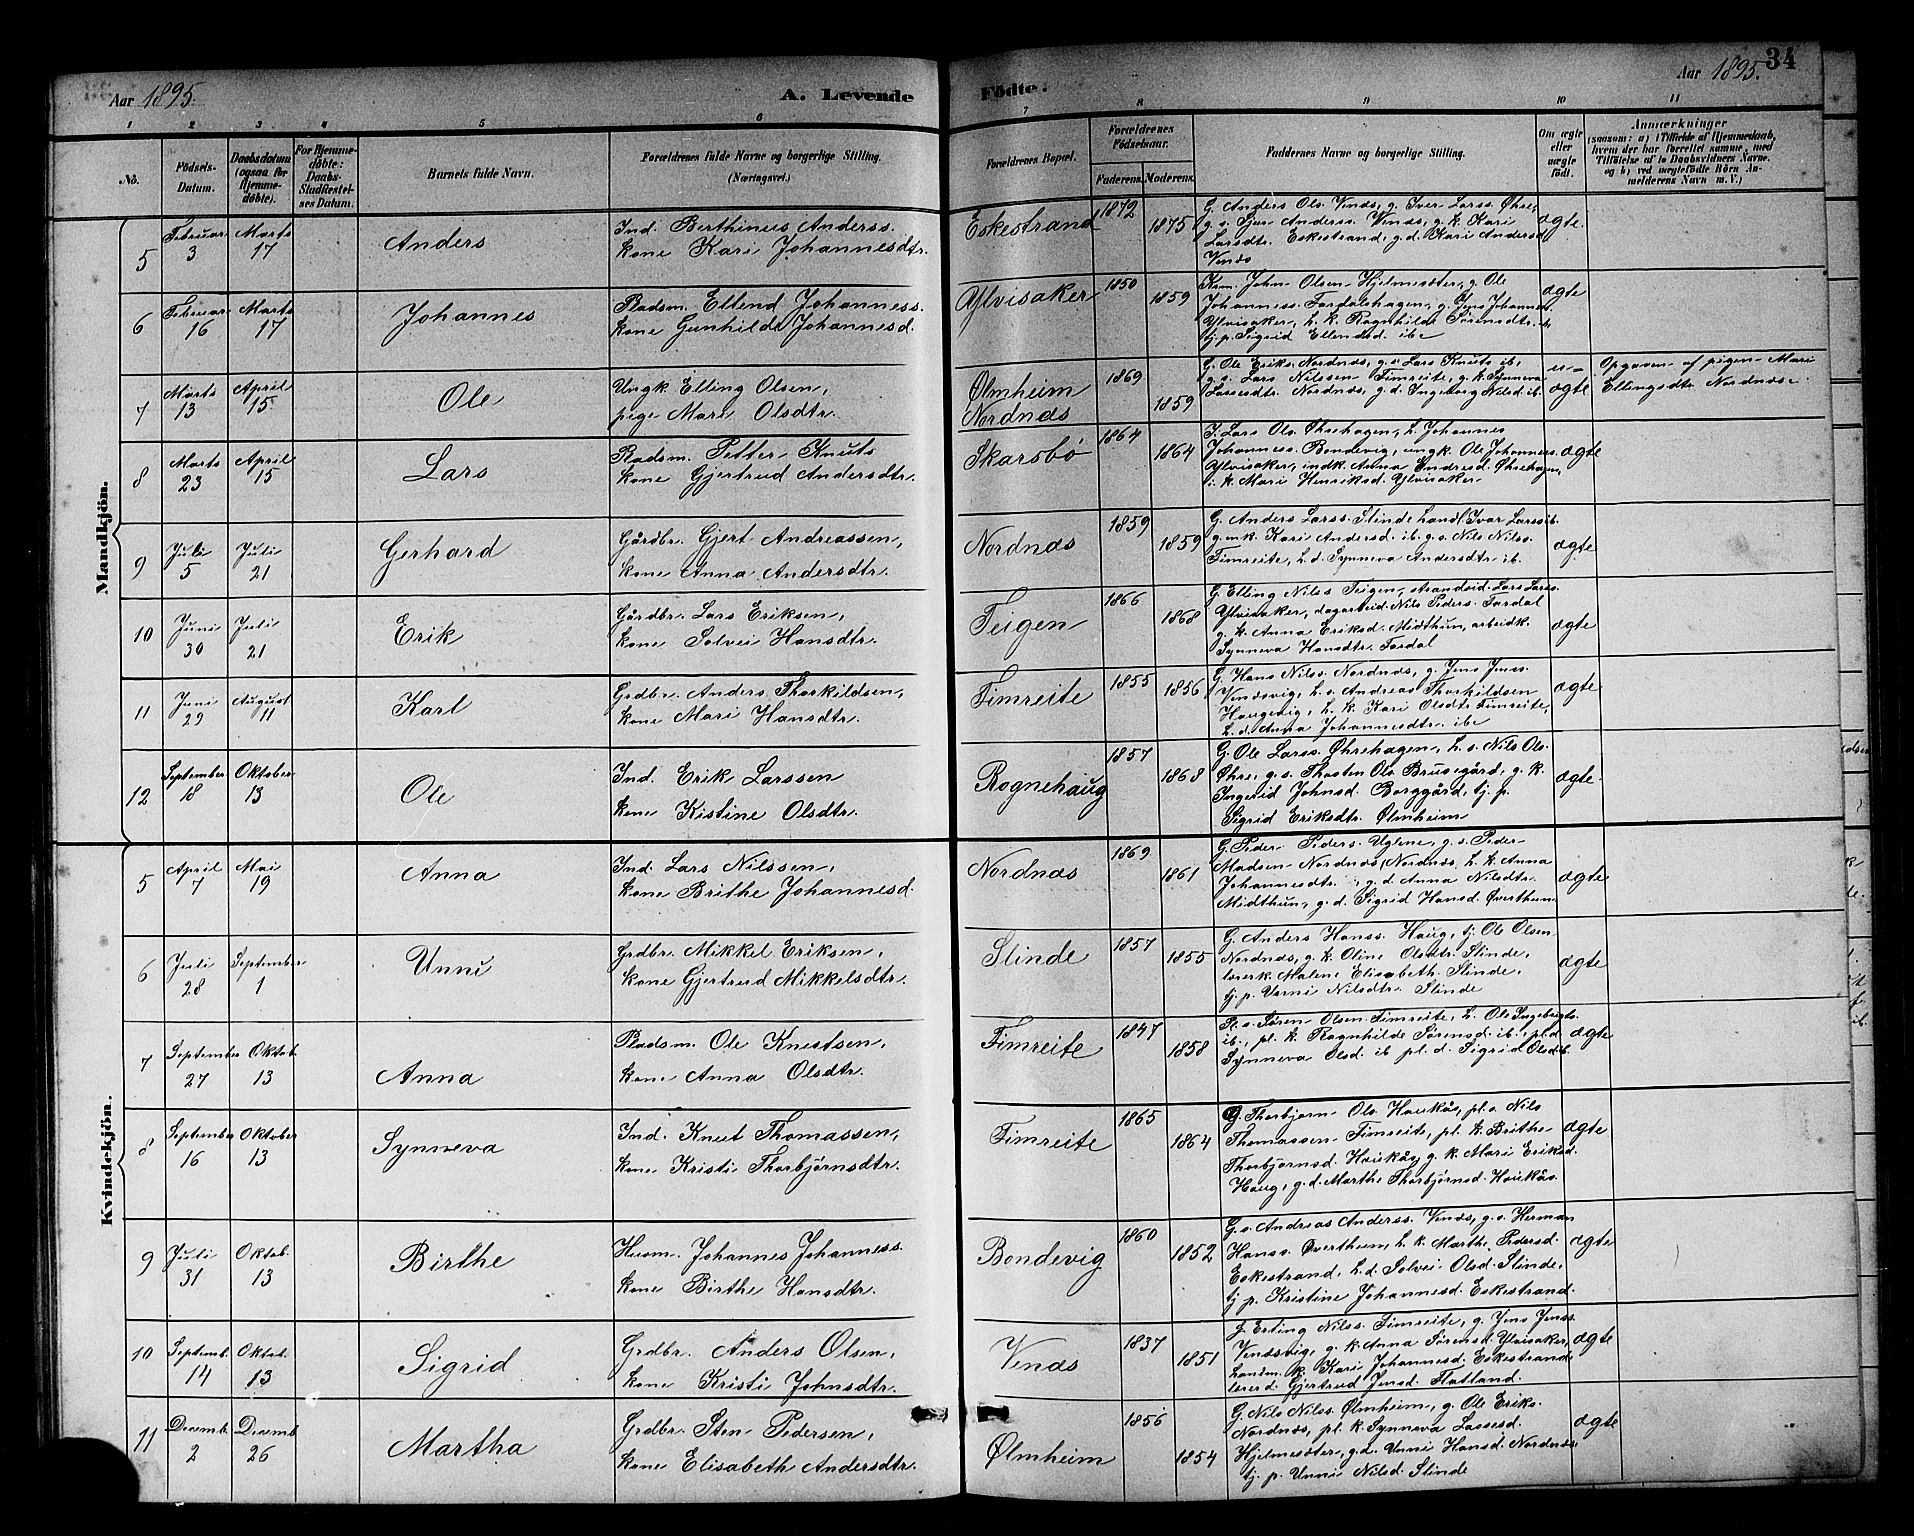 Aar 1895.
A. Levende
Födte.
Aar 1895.
34
1 2 3 4 5 6 7 8 9 10 11
No.
Födsels-Datum.
Daabsdatum (ogsaa for Hjemme-døbte).
For Hjemme-döbte: Daabs-Stadfæstel-ses Datum.
Barnets fulde Navn.
Forældrenes fulde Navne og borgerlige Stilling. (Næringsvei.)
Forældrenes Bopæl.
Forældrenes Födselsaar.
Faderens. Moderens.
Faddernes Navne og borgerlige Stilling.
Om ægte eller uægte födt.
Anmærkninger
(saasom: a) i Tilfælde af Hjemmedaab,
hvem der har forrettet samme, med
Tilføielse af to Daabsvidners Navne.
og b) ved uægtefödte Börn An-
melderens Navn m. V.)
Mandkjön.
5 Februar 3 Marts 17 Anders
Ind. Berthinus Anderss.
kone Kari Johannesdtr.
Eskestrand 1872 1875
G. Anders Ols. Venæs, g. Iver Larss. Øhre,
g. s. Sjur Anderss. Venæs, g. k. Kari
Larsdtr. Eskestrand, g. d. Kari Andersd.
Venæs
ægte.
6 Februar 16 Marts 17 Johannes
Pladsm. Ellend Johanness.
kone Gunhilde Johannesd.
Ylvisaker 1850 1859
John Olsen Hjelmesæter, g. Ole
Johanness. Fardalehagen, g. Jens Johannes.
Ylvisaker, h. k. Ragnhilde Sørensdtr. ib.
tj. p. Sigrid Ellendsd. ibe
ægte
7 Marts 13 April 15 Ole
Ungk. Elling Olsen,
pige Mari Olsdtr.
Ølmheim
Nordnæs 1869 1859
G. Ole Eriks. Nordnæs, g. s. Lars Knuts. ib.
g. s. Lars Nilssen Fimreite, g. k. Synneva
Lassesdtr. Nordnæs, g. d. Ingeborg Nilsd. ib.
u-
ægte
Opgaven af pigen Mari
Ellingsdtr Nordnæs
8 Marts 23 April 15 Lars
Pladsm. Petter Knuts
kone Gjertrud Andersdtr.
Skarsbø 1864 1864
I. Lars Ols. Øhrehagen, h. Johannes
Johanness. Bondevig, ungk. Ole Johanness.
Ylvisaker, indk. Anna Endresd. Øhrehagen,
i. k. Mari Henriksd. Ylvisaker
ægte
9 Juli 5 Juli 21 Gerhard
Gårdbr. Gjert Andreassen,
kone Anna Andersdtr.
Nordnæs 1859 1859
G. Anders Larss. Slinde Landh. Ivar Larss ib.
g. m. k. Kari Andersd. ib. g. s. Nils Nilss.
Fimreite, h. d. Synneva Andersdtr ib.
ægte
10 Juni 30 Juli 21 Erik
Gårdbr. Lars Eriksen,
kone Solvei Hansdtr.
Teigen 1866 1868
G. Elling Nils. Teigen, strandsid. Lars Larss.
Ylvisaker, dagarbeid. Nils Peders. Fardal
g. k. Anna Eriksd. Midthun, arbeidk.
Synneva Hansdtr. Fardal
ægte
11 Juni 29 August 11 Karl
Grdbr. Anders Thorkildsen,
kone Mari Hansdtr.
Fimreite 1855 1856
G. Hans Nilss. Nordnæs, g. Jens Jenss.
Venæsvig, h. s. Andreas Thorkildsen
Haugevig, h. k. Kari Olsdtr Fimreite,
h. d. Anna Johannesdtr. ibe
ægte
12 September 18 Oktober 13 Ole
Ind. Erik Larssen
kone Kistine Olsdtr.
Rognehaug 1857 1868
G. Ole Larss. Øhrehagen, h. s. Nils Ols.
Øhre, g. s. Thosten Ols. Brusegård, g. k.
Ingerid Johnsd. Borggård, tj. p.
Sigrid Eriksdtr. Ølmheim
ægte.
Kvindekjön.
5 April 7 Mai 19 Anna
Ind. Lars Nilssen,
kone Brithe Johannesd.
Nordnæs 1869 1861
G. Peder Peders. Uglene, g. s. Peder
Madsen Nordnæs, Nordnæs, h. k. Anna
Johannesdtr. g. d. Anna Nilsdtr.
Midthun, g. d. Sigrid Hansd. Øverthun
ægte
6 Juli 28 September 1 Unni
Grdbr. Mikkel Eriksen,
kone Gjertrud Mikkelsdtr.
Slinde 1857 1855
G. Anders Hanss. Haug, tj. Ole Olsen
Nordnæs, g. k. Oline Olsdtr. Slinde,
lærerk. Malene Elisabeth Slinde,
tj. p. Unni Nilsdtr. Slinde
ægte
7 September 27 Oktob. 13 Anna
Pladsm. Ole Knutsen,
kone Anna Olsdtr.
Fimreite 1847 1858
Pl. s. Søren Olsen Fimreite, h. Ole Ingebrigts.
ib., pl. k. Ragnhilde Sørensd. ib., pl. d.
Synneva Olsd. ib pl. d. Sigrid Olsd ib.
ægte
8 September 16 Oktober 13 Synneva
Ind. Knut Thomassen,
kone Kristi Thorbjørnsdtr.
Fimreite 1865 1864
G. Thorbjørn Ols. Haukås, pl. s. Nils
Thomassen Fimreite, pl. k. Brithe
Thorbjørnsd. Haukås, g. k. Mari Eriksd.
Haug, g. d. Marthe Thorbjørnsd. Haukås.
ægte
9 Juli 31 Oktob. 13 Birthe
Husm. Johannes Johanness.
kone Birthe Hansdtr.
Bondevig 1860 1852
G. s. Andreas Anderss. Venæs, g. s. Herman
Hanss. Øverthun, h. k. Marthe Pedersd.
Eskestrand, h. d. Solvei Olsd. Slinde,
tj. p. Kristine Johannesd. Eskestrand.
ægte
10 Septemb. 14 Oktob. 13 Sigrid
Grdbr. Anders Olsen,
kone Kristi Johnsdtr.
Venæs 1837 1851
G. Erting Nilss. Fimreite, g. Jens Jenss.
Venæsvig, g. k. Anna Sørensd. Ylvisaker,
Landm. k. Kari Johannesd. Eskestrand
lærerd. Gjertrud Jensd. Flatland.
ægte
11 Decemb. 2 Decemb. 26 Martha
Grdbr. Sten Pedersen,
kone Elisabeth Andersdtr.
Ølmheim 1856 1854
G. Nils Nilss. Ølmheim, g. Ole Eriks.
Nordnæs, pl. k. Synneva Lassesd.
Hjelmesæter, g. d. Unni Hansd. Nordnæs,
tj. p. Unni Nilsd. Slinde
ægte